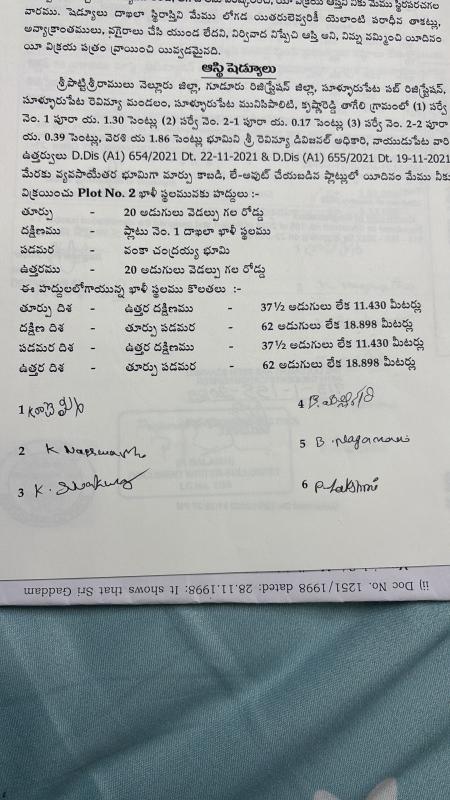 వారము. షెడ్యూలు దాఖలా స్థిరాస్తిని మేము లోగడ యితరులెవ్వరికీ యెలాంటి పరాధీన తాకట్లు,
అన్యాక్రాంతములు, వగైరాలు చేసి యుండ లేదని, నిర్వివాద నిష్పేచి ఆస్తి అని, నిన్ను నమ్మించి యీదినం
యీ విక్రయ పత్రం వ్రాయించి యివ్వడమైనది.
ఆస్తి షెడ్యూలు
శ్రీపొట్టిశ్రీరాములు నెల్లూరు జిల్లా, గూడూరు రిజిస్ట్రేషన్ జిల్లా, సూళ్ళూరుపేట సబ్ రిజిస్ట్రేషన్,
సూళ్ళూరుపేట రెవిన్యూ మండలం, సూళ్ళూరుపేట మునిసిపాలిటి, కృష్ణారెడ్డి తాగేలి గ్రామంలో (1) సర్వే
నెం. 1 పూరా య. 1.30 సెంట్లు (2) సర్వే నెం. 2-1 పూరా య. 0.17 సెంట్లు (3) సర్వే నెం. 2-2 పూరా
య. 0.39 సెంట్లు, వెరశి య 1.86 సెంట్లు భూమిని శ్రీ రెవిన్యూ డివిజనల్ అధికారి, నాయుడుపేట వారి
ఉత్తర్వులు D.Dis (A1) 654/2021 Dt. 22-11-2021 & D.Dis (A1) 655/2021 Dt. 19-11-2021
మేరకు వ్యవసాయేతర భూమిగా మార్పు కాబడి, లే-అవుట్ చేయబడిన ప్లాట్లులో యీదినం మేము నీకు
విక్రయించు Plot No. 2 ఖాళీ స్థలమునకు హద్దులు :-
తూర్పు - 20 అడుగులు వెడల్పు గల రోడ్డు
దక్షిణము - ప్లాటు నెం. 1 దాఖలా ఖాళీ స్థలము
పడమర - వంకా చంద్రయ్య భూమి
ఉత్తరము - 20 అడుగులు వెడల్పు గల రోడ్డు
ఈ హద్దులలోగాయున్న ఖాళీ స్థలము కొలతలు :-
తూర్పు దిశ - ఉత్తర దక్షిణము - 37½ అడుగులు లేక 11.430 మీటర్లు
దక్షిణ దిశ - తూర్పు పడమర - 62 అడుగులు లేక 18.898 మీటర్లు
పడమర దిశ - ఉత్తర దక్షిణము - 37½ అడుగులు లేక 11.430 మీటర్లు
ఉత్తర దిశ - తూర్పు పడమర - 62 అడుగులు లేక 18.898 మీటర్లు
1
2 K
3 K.
4
5 B. nagamani
6 P. Lakshmi
ii] Doc No. 1251/1998 dated: 28.11.1998: It shows that Sri Gaddam